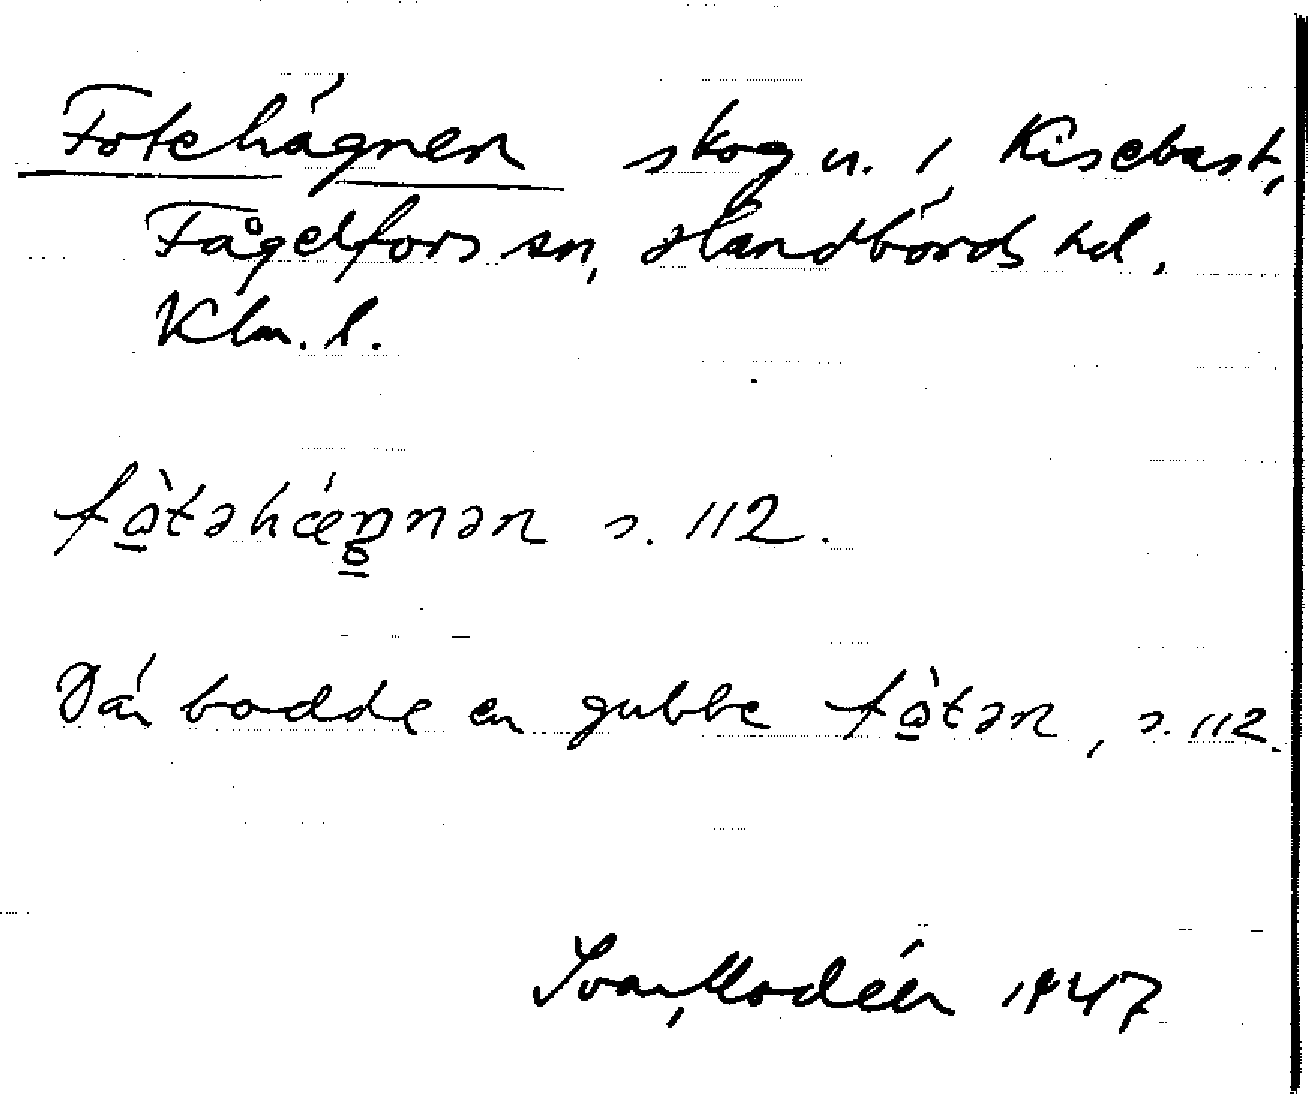 Fotehägnen skog u. i Kisebast,
Fågelfors sn, Handbörds hd.
Klm. l.
fo̠̊̀təhǽgnən s. 112.
Där bodde en gubbe fo̠̊̀tən, s. 112.
Ivar Modéer 1947